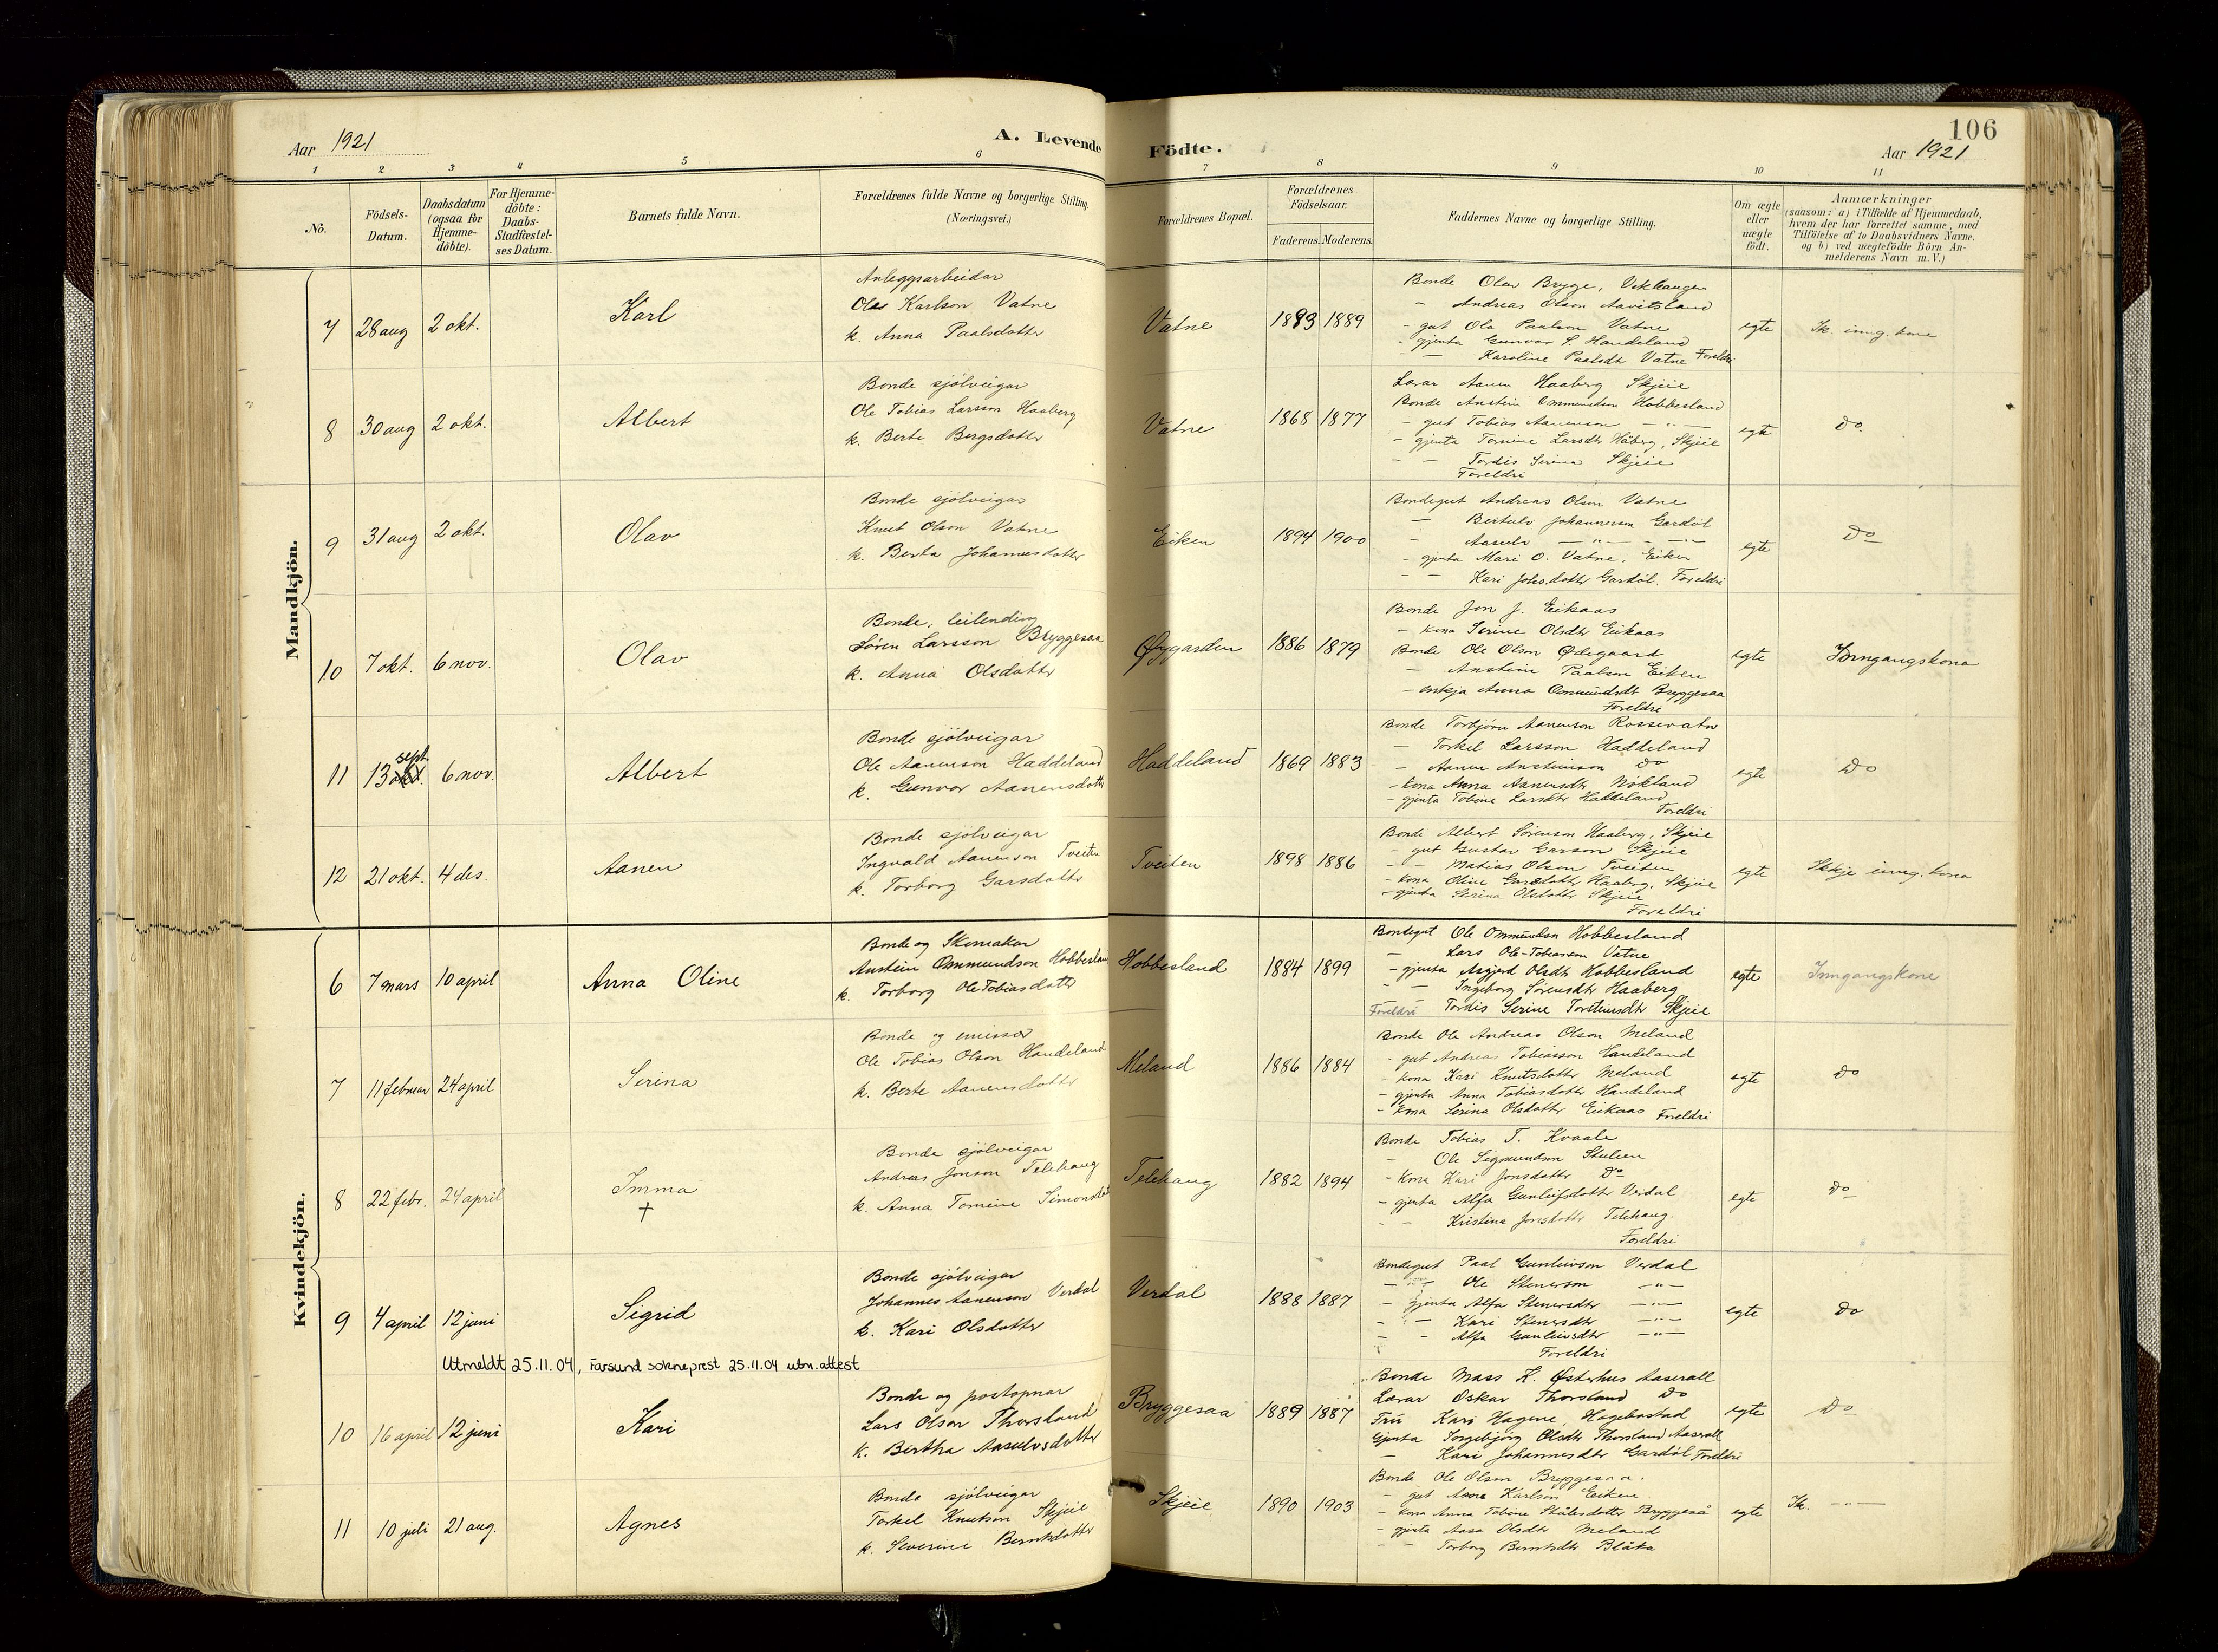 106
Aar 1921
A. Levende
Födte.
Aar 1921
1
2
3
4
5
6
7
8
9
10
11
No.
Födsels-
Datum.
Daabsdatum
(ogsaa för
Hjemme-
döbte).
For Hjemme-
döbte:
Daabs-
Stadfæstel-
ses Datum.
Barnets fulde Navn.
Forældrenes fulde Navne og borgerlige Stilling.
(Næringsvei.)
Forældrenes Bopæl.
Forældrenes
Födselsaar.
Faderens.
Moderens.
Faddernes Navne og borgerlige Stilling.
Om ægte
eller
uægte
födt.
Anmærkninger
(saasom: a) i Tilfælde af Hjemmedaab,
hvem der har forrettet samme, med
Tilföielse af to Daabsvidners Navne.
og b) ved uægtefödte Börn An-
melderens Navn m.V.)
Mandkjön.
7 28 aug 2 okt. Karl
Anleggsarbeidar
Ola Karlson Vatne
k. Anna Paalsdotter
Vatne 1883 1889
Bonde Olav Brygge,
- Andreas Olson Aavitsland
- gut Ola Paalson Vatne
- gjenta Gunvor S. Handeland
- Karoline Paalsdt Vatne Foreldri
egte
Sk. inng. kone
8 30 aug 2 okt. Albert
Bonde sjölveigar
Ole Tobias Larsson Haaberg
k. Berte Bergsdotter
Vatne 1868 1877
Lærar Aanen Haaberg Skjeie
Bonde Anstein Ommundson Hobbesland
- gut Tobias Aanenson - " -
- gjenta Tomine Larsdtr Håberg, Skjeie
- - Tordis Serina Skjeie
Foreldri
egte
Do
9 31 aug 2 okt. Olav
Bonde sjölveigar
Knut Olson Vatne
k. Berta Johannesdotter
Eiken 1894 1900
Bondegut Andreas Olson Vatne
- Bertulv Johannesson Gardöl
- Aasulv - " - - " -
- gjenta Mari O. Vatne, Eiken
- - Kari Johs.dotter Gardöl. Foreldri
egte
Do
10 7 okt. 6 nov. Olav
Bonde, leilending
Sören Larsson Bryggesaa
k. Anna Olsdotter
Øygarden 1886 1879
Bonde Jon J. Eikaas
- kona Serine Olsdtr Eikaas
Bonde Ole Olson Ødegaard
- Anstein Paalson Eiken
- enkja Anna Ommundsdt Bryggesaa
Foreldri
egte
Inngangskona
11 13 sept 6 nov. Albert
Bonde sjölveigar
Ole Aanenson Haddeland
k. Gunvor Aanensdotter
Haddeland 1869 1883
Bonde Torbjörn Aanenson Rossevatn
- Torkel Larsson Haddeland
- Aanen Ansteinson Do
- kona Anna Aanensdtr Nökland
- gjenta Tobine Larsdtr Haddeland
Foreldri
egte
Do
12 21 okt. 4 des. Aanen
Bonde sjölveigar
Ingvald Aanenson Tveiten
k. Torborg Garsdotter
Tveiten 1898 1886
Bonde Albert Sörenson Haaberg, Skjeie
- gut Gustav Garson Skjeie
- - Matias Olson Tveiten
- kona Oline Garsdotter Haaberg, Skjeie
- gjenta Serina Olsdotter Skjeie
Foreldri
egte
inng. kona
Kvindekjön.
6 7 mars 10 april Anna Oline
Bonde og Skomakar
Anstein Ommundson Hobbesland
k. Torborg Ole Tobiasdotter
Hobbesland 1884 1899
Bondegut Ole Ommundson Hobbesland
- Lars Ole-Tobiasson Vatne
- gjenta Asgjerd Olsdt Hobbesland
- - Ingeborg Sörensdtr Haaberg
Foreldri Tordis Serine Torsteinsdtr Skjeie
egte
Inngangskone
7 11 februar 24 april Serina
Bonde og emissær
Ole Tobias Olson Handeland
k. Berte Aanensdotter
Meland 1886 1884
Bonde Ole Andreas Olson Meland
- gut Andreas Tobiasson Handeland
- kona Kari Knutsdotter Meland
- gjenta Anna Tobiasdotter Handeland
- kona Serina Olsdotter Eikaas Foreldri
egte
Do
8 22 febr. 24 april Imma
†
Bonde sjölveigar
Andreas Jonson Telehaug
k. Anna Tomine Simonsdott
Telehaug 1882 1894
Bonde Tobias T. Kvaale
- Ole Sigmundson
- Kona Kari Jonsdotter Do
- gjenta Alfa Gunleifsdotter Verdal
- - Kristina Jonsdotter Telehaug.
Foreldri
egte
Do
9 4 april 12 juni Sigrid
Bonde sjölveigar
Johannes Aanenson Verdal
k. Kari Olsdotter
Verdal 1888 1887
Bondegut Paal Gunleivson Verdal
- - Ole Stenerson - " -
- gjenta Alfa Stenersdtr - " -
- - Kari Stenersdtr - " -
- - Alfa Gunleivsdtr - " -
Foreldri
egte
Do
Utmeldt 25.11.04, Farsund sokneprest 25.11.04 utm. attest
10 16 april 12 juni Kari
Bonde og postopnar
Lars Olson Thorsland
k. Bertha Aasulvsdotter
Bryggesaa 1889 1887
Bonde Mass K. Østerhus Aaserall
Lærar Oskar Thorsland Do
Fru Kari Hagene, Hægebostad
Gjenta Ingebjörg Olsdtr Thorsland, Aaserall
- Kari Johannesdtr Gardöl Foreldri
egte
Do
11 10 juli 21 aug. Agnes
Bonde sjölveigar
Torkel Knutson Skjeie
k. Severine Berntsdotter
Skjeie 1890 1903
Bonde Ole Olson Bryggesaa.
- gut Karlson Eiken
- kona Anna Tobine Ståledotter Bryggeså
- gjenta Aasa Olsdtr Meland
- - Torborg Berntsdtr Blåka
egte
Sk. - " -